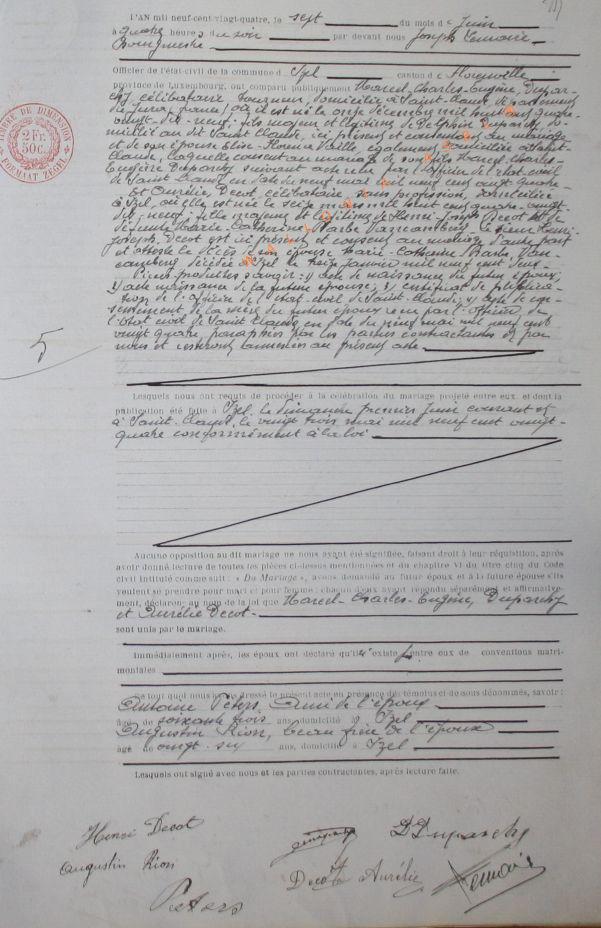 L'AN mil neuf cent vingt-quatre, le sept du mois de Juin
à quatre heures du soir par devant nous Joseph Lemaire
Bourgmestre
Officier de l'état-civil de la commune d'Izel canton de Florenville
province de Luxembourg, ont comparu publiquement Marcel-Charles-Eugène Dupar-
chy, célibataire, tourneur, domicilié à Saint-Claude département
du Jura, où il est né le onze décembre mil huit cent quatre-
vingt-dix-neuf, fils majeur et légitime de Duparchy
au dit Saint Claude, ici présent et consentant au mariage
et de son épouse Vaille, également domiciliée à Saint-
Claude, laquelle consent au mariage de son fils Marcel-Charles-
Eugène Duparchy suivant acte reçu par l'officier de l'état civil
de Saint-Claude en date du neuf mai mil neuf cent vingt-quatre
Et Aurélie Decot, célibataire, sans profession, domiciliée
à Izel, où elle est née le seize mars mil huit cent quatre-vingt
dix-neuf, fille majeure et légitime de Henri-Joseph Decot et de
défunte Marie-Catherine Barbe Le sieur Henri-
Joseph Decot est ici présent et consent au mariage d'autre part
et atteste le décès de son épouse Marie-Catherine Barbe
décédée à Izel le treize Janvier mil neuf cent
Pièces produites savoir: 1) acte de naissance du futur époux;
2) acte naissance de la future épouse; 3) certificat de publica-
tion de l'officier de l'état-civil de Saint-Claude; 4) acte de con-
sentement de la mère du futur époux reçu par l'officier de
l'état civil de Saint Claude en date du neuf mai mil neuf cent
vingt quatre paraphés par les parties contractantes et par
nous et resteront annexées au présent acte
5
TIMBRE DE DIMENSION
2 Fr.
50C.
FORMAAT ZEGEL
Lesquels nous ont requis de procéder à la célébration du mariage projeté entre eux et dont la
publication été faite à Izel, le dimanche premier Juin courant et
à Saint-Claude, le vingt trois mai mil neuf cent vingt-
quatre conformément à la loi
Aucune opposition au dit mariage ne nous ayant été signifiée, faisant droit à leur réquisition, après
avoir donné lecture de toutes les pièces ci-dessus mentionnées et du chapitre VI du titre cinq du Code
civil intitulé comme suit: « Du Mariage », avons demandé au futur époux et à la future épouse s'ils
veulent se prendre pour mari et pour femme; chacun d'eux ayant répondu séparément et affirmative-
ment, déclarons au nom de la loi que Marcel-Charles-Eugène, Duparchy
et Aurélie Decot
sont unis par le mariage.
Immédiatement après, les époux ont déclaré qu'il existe entre eux de conventions matri-
moniales
De tout quoi nous avons dressé le présent acte en présence des témoins ci-de sous dénommés, savoir:
Antoine Peters, Ami de l'époux
âgé de soixante trois ans domicilié à Izel
Augustin Rion, beau frère de l'époux
âgé de vingt-six ans, domicilié à Izel
Lesquels ont signé avec nous et les parties contractantes, après lecture faite.
Henri Decot
Duparchy
Augustin Rion
Decot Aurélie
Lemaire
Peters